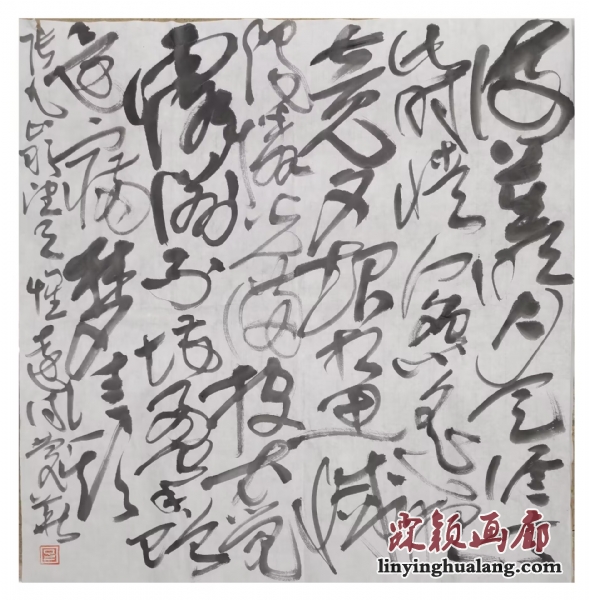 海上生明月天涯共
此时情人怨遥夜
竟夕起相思灭
烛怜光满披衣觉
露滋不堪盈手赠
还寝梦佳期
张九龄望月怀远
霖颖画廊
linyinghualang.com